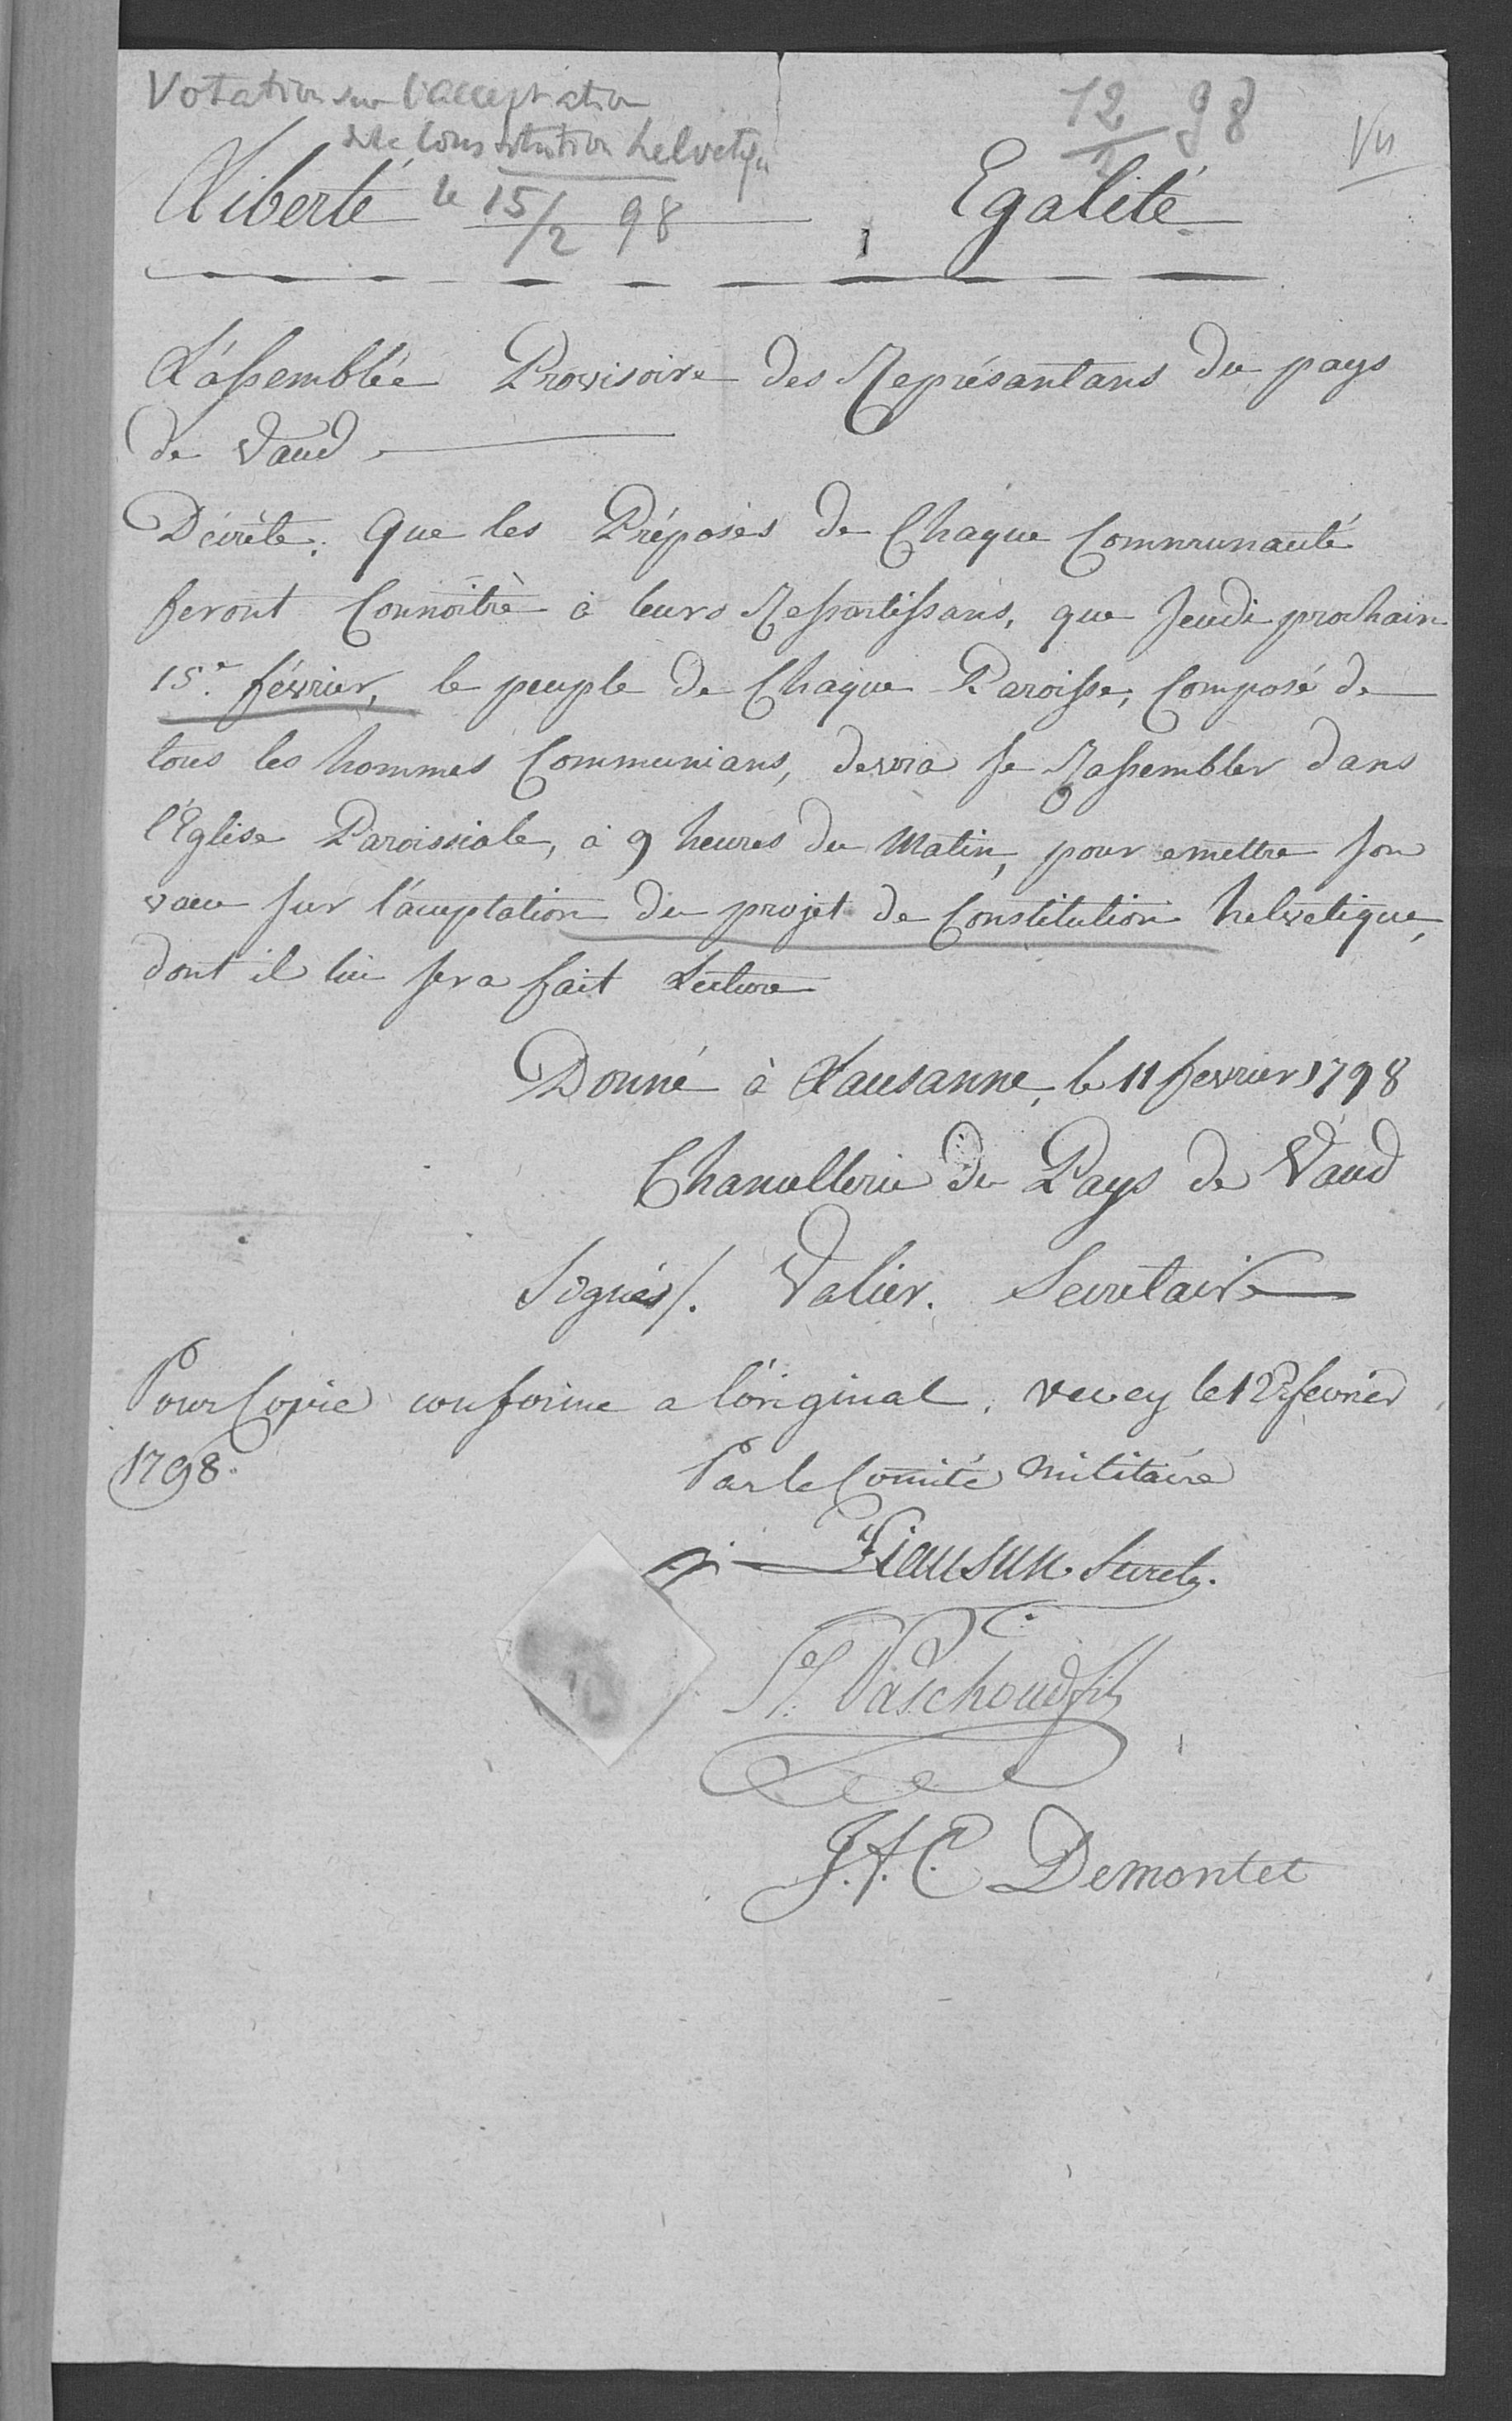 Votation sur l'acceptation
de la Constitution helvetiqu
le 15/2 98
12/2 98
Vu
Liberté Egalité
L'assemblée Provisoire des Représantans du pays
de Vaud
Décrète: Que les Préposés de Chaque Communauté
feront Connoitrè à leurs Ressortissans, que Jeudi prochain
15.e février, le peuple de Chaque Paroisse, Composé de
tous les hommes Communians, devra se Rassembler dans
l'Eglise Paroissiale, à 9 heures du Matin, pour emettre son
vœu sur l'acceptation du projet de Constitution helvetique,
dont il lui sera fait Lecture
Donné à Lausanne, le 11 fevrier 1798
Chancellerie du Pays de Vaud
Signés/. Valier. Secretaire
Pour Copie conforme a l'original. vevey le 12e fevrier
1798.
Par le Comité Militaire
Secrets.
Paschoud fils
J. A. C Demontet